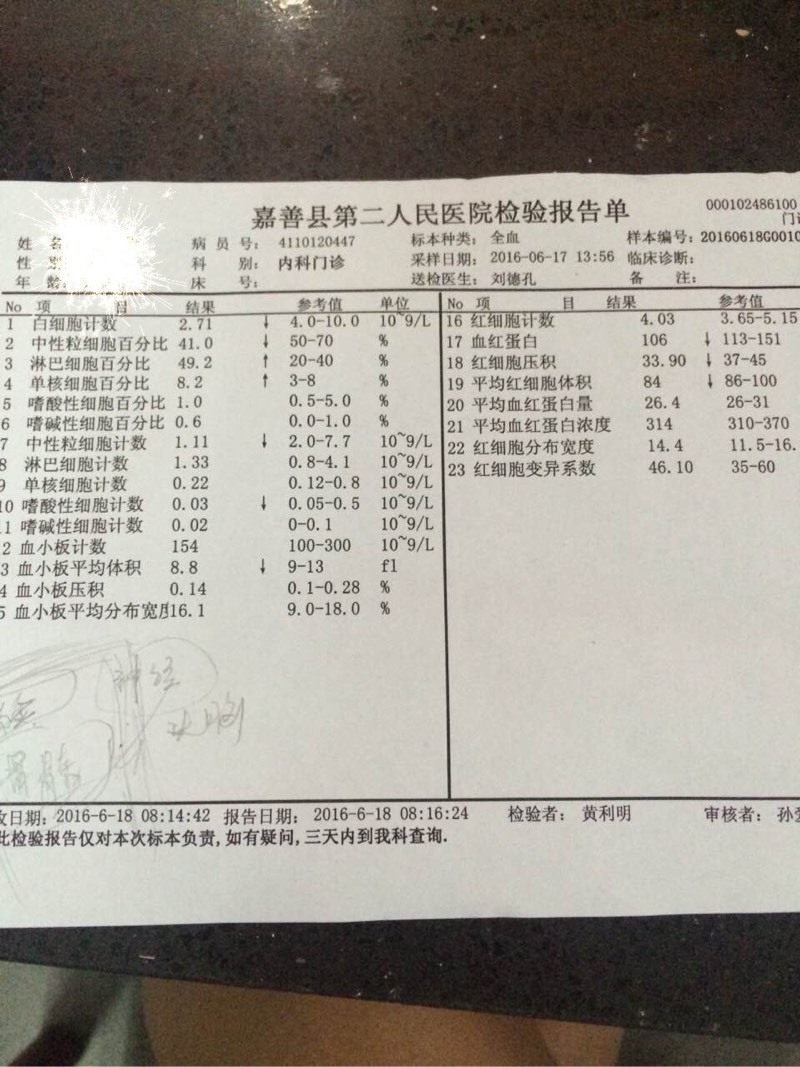 嘉善县第二人民医院检验报告单
000102486100
门诊
姓 名
病 员 号: 4110120447
标本种类: 全血
样本编号: 20160618G0010
性 别
科 别: 内科门诊
采样日期: 2016-06-17 13:56
临床诊断:
年 龄:
床 号:
送检医生: 刘德孔
备 注:
No 项 目 结果 参考值 单位
1 白细胞计数 2.71 ↓ 4.0-10.0 10~9/L
2 中性粒细胞百分比 41.0 ↓ 50-70 %
3 淋巴细胞百分比 49.2 ↑ 20-40 %
4 单核细胞百分比 8.2 ↑ 3-8 %
5 嗜酸性细胞百分比 1.0 0.5-5.0 %
6 嗜碱性细胞百分比 0.6 0.0-1.0 %
7 中性粒细胞计数 1.11 ↓ 2.0-7.7 10~9/L
8 淋巴细胞计数 1.33 0.8-4.1 10~9/L
9 单核细胞计数 0.22 0.12-0.8 10~9/L
10 嗜酸性细胞计数 0.03 ↓ 0.05-0.5 10~9/L
1 嗜碱性细胞计数 0.02 0-0.1 10~9/L
2 血小板计数 154 100-300 10~9/L
3 血小板平均体积 8.8 ↓ 9-13 fl
4 血小板压积 0.14 0.1-0.28 %
5 血小板平均分布宽度 16.1 9.0-18.0 %
No 项 目 结果 参考值
16 红细胞计数 4.03 3.65-5.15
17 血红蛋白 106 ↓ 113-151
18 红细胞压积 33.90 ↓ 37-45
19 平均红细胞体积 84 ↓ 86-100
20 平均血红蛋白量 26.4 26-31
21 平均血红蛋白浓度 314 310-370
22 红细胞分布宽度 14.4 11.5-16.
23 红细胞变异系数 46.10 35-60
神经
头胸
收日期: 2016-6-18 08:14:42 报告日期: 2016-6-18 08:16:24 检验者: 黄利明 审核者: 孙
此检验报告仅对本次标本负责,如有疑问,三天内到我科查询.